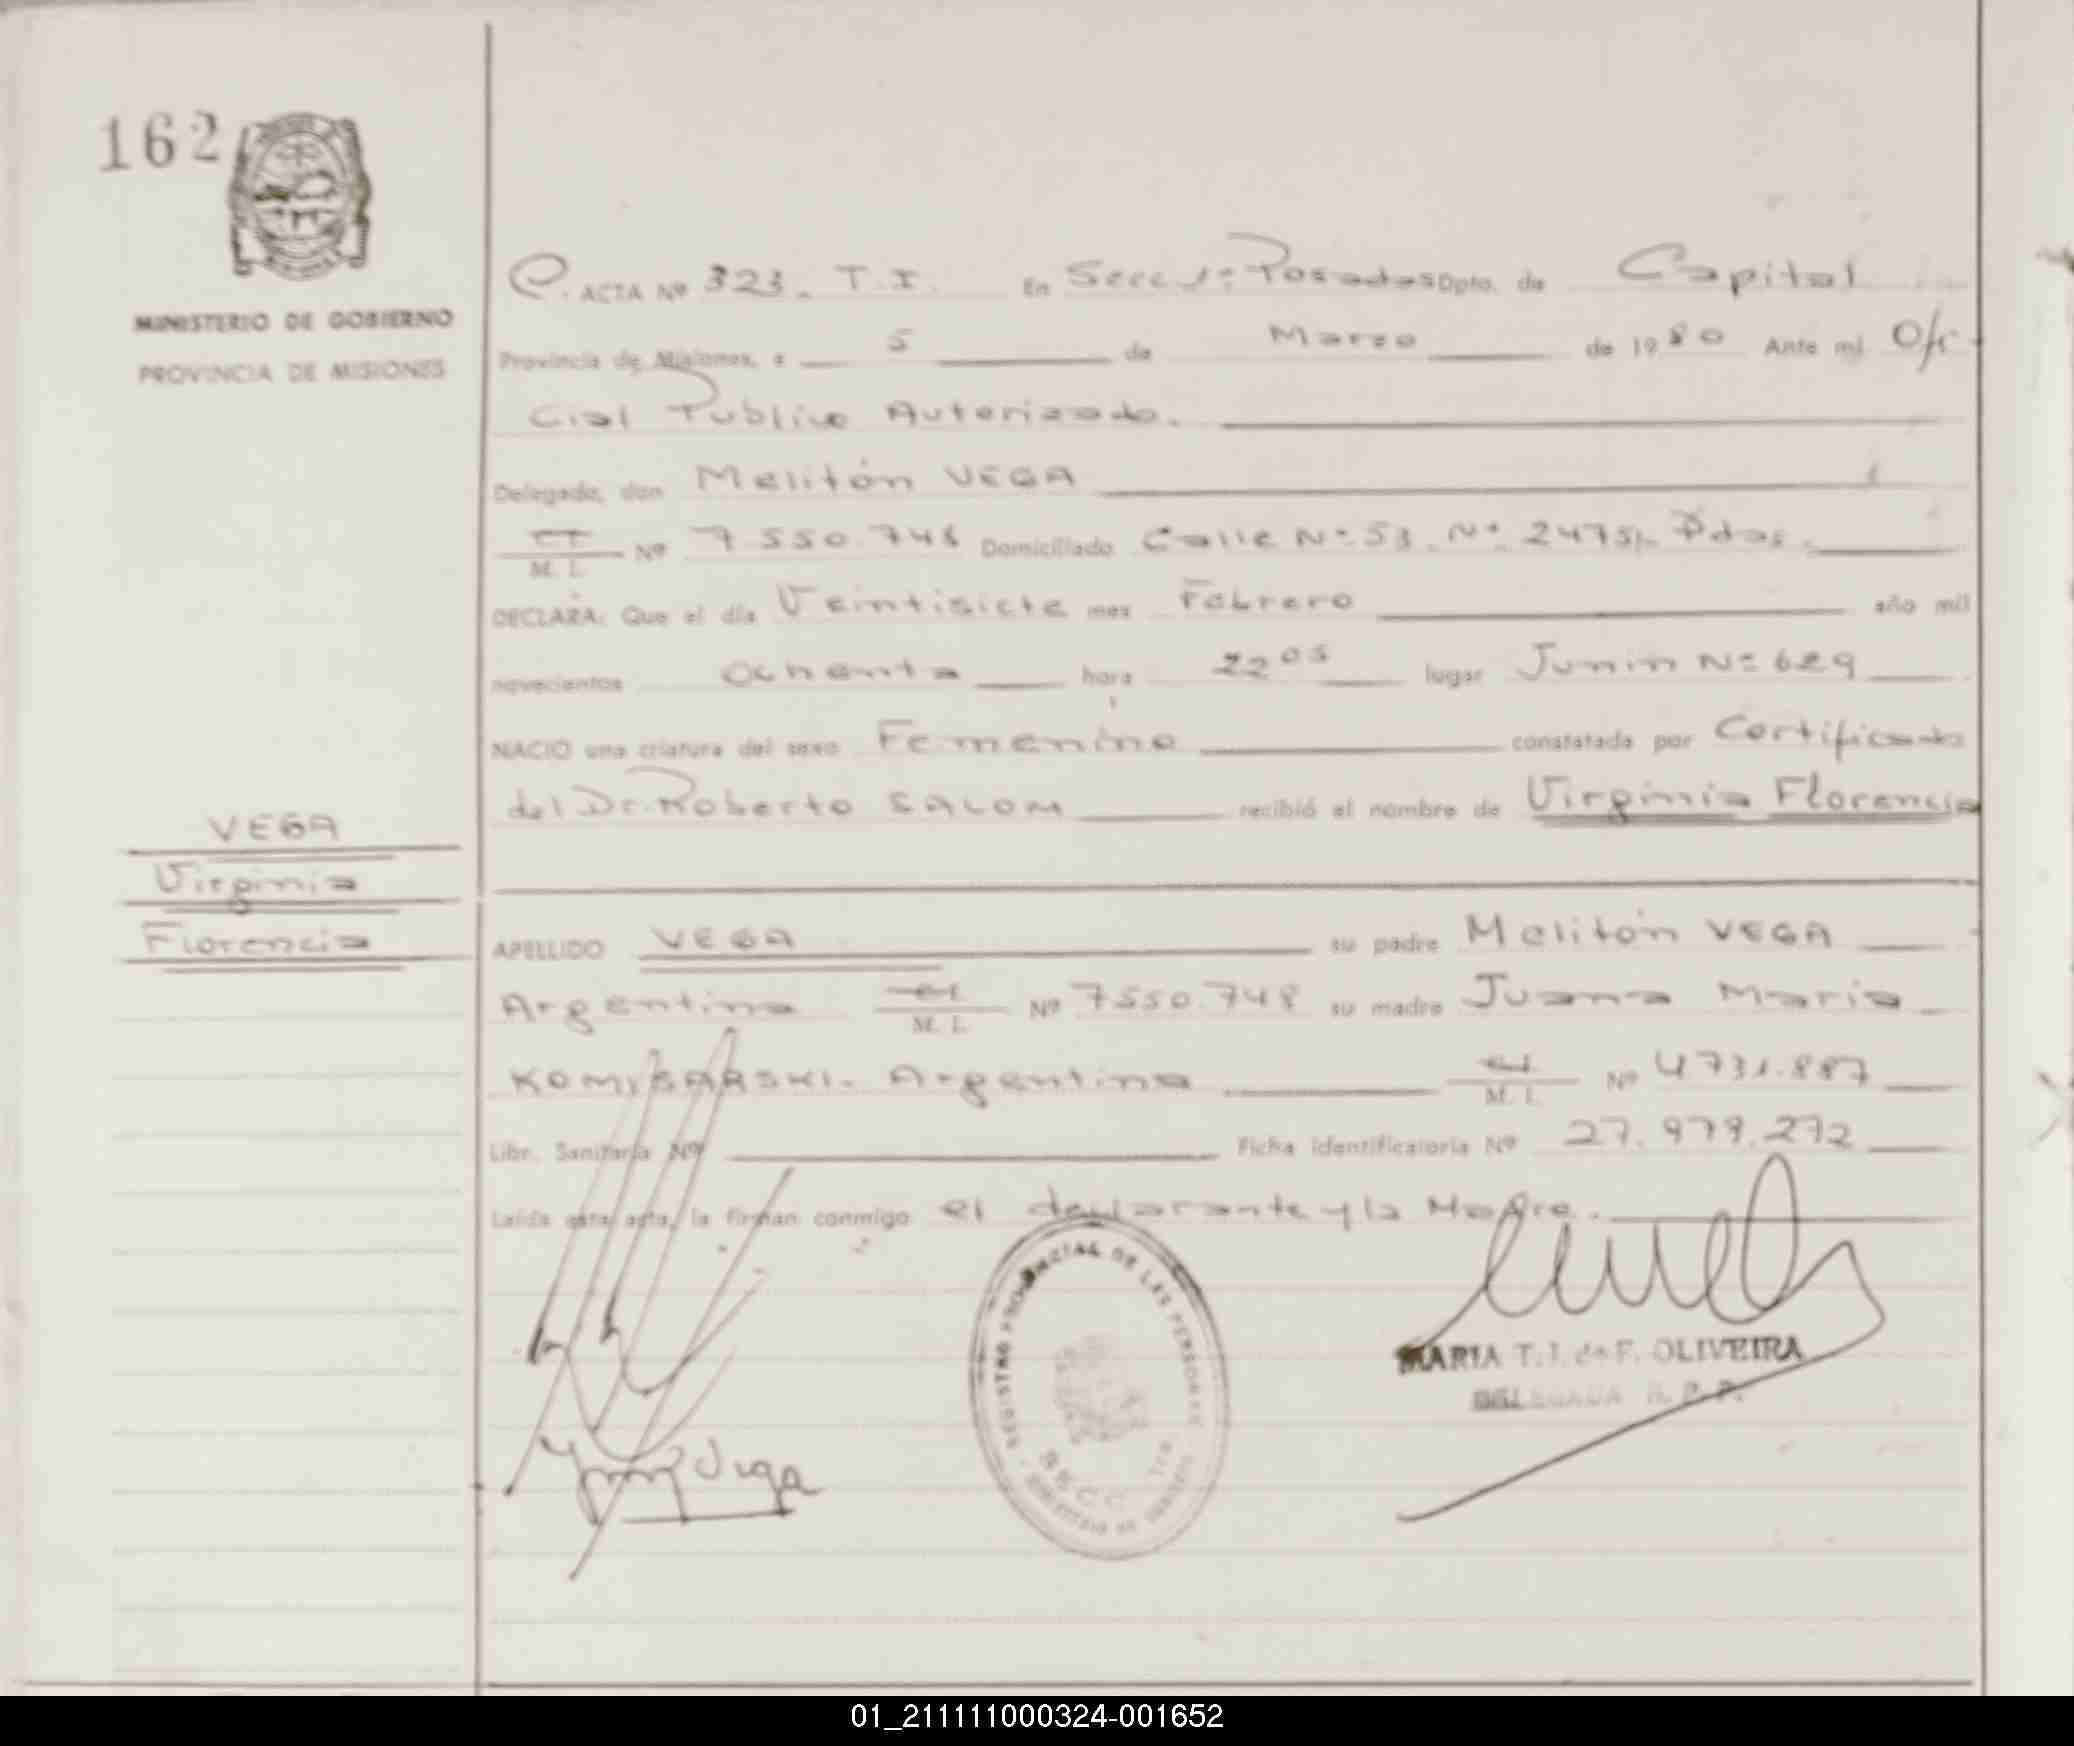 162
MINISTERIO DE GOBIERNO
PROVINCIA DE MISIONES
ACTA Nº 323. T.I. En Secc 1ª Posadas Dpto. de Capital
Provincia de Misiones, a 5 de Marzo de 1980 Ante mí Ofi-
cial Publico Autorizado.
Delegado, don Melitón VEGA
M. I. Nº 7.550.748 Domiciliado Calle Nº 53. Nº 2475. Pdas.
DECLARA: Que el día Veintisiete mes Febrero año mil
novecientos Ochenta hora 22 05 lugar Junin Nº 629
NACIO una criatura del sexo Femenino constatada por Certificado
del Dr. Roberto SALOM recibió el nombre de Virginia Florencia
VEGA
Virginia
Florencia
APELLIDO VEGA su padre Melitón VEGA
Argentino M. I. Nº 7550.748 su madre Juana Maria
KOMISARSKI. Argentina M. I. Nº 4731.887
Libr. Sanitaria Nº Ficha identificatoria Nº 27.979.272
Leída esta acta, la firman conmigo el declarante y la Madre.
REGISTRO PROVINCIAL DE LAS PERSONAS
SECC. 1ra
Vega
MARIA T. I. de F. OLIVEIRA
DELEGADA R. P. P.
01_211111000324-001652